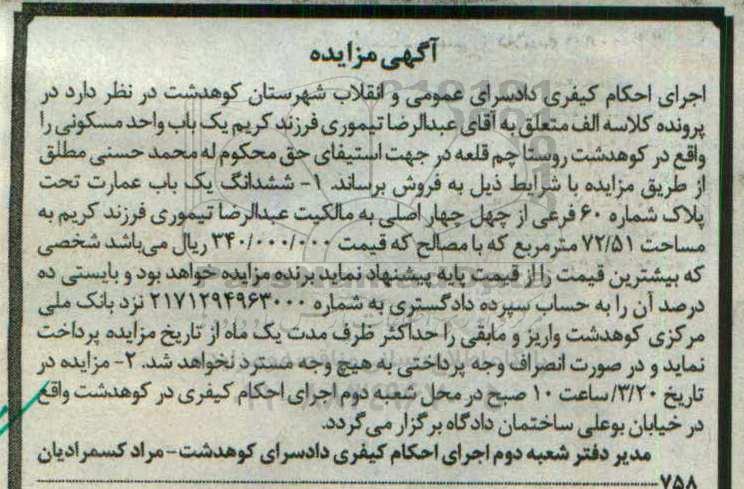 آگهی مزایده
اجرای احکام کیفری دادسرای عمومی و انقلاب شهرستان کوهدشت در نظر دارد در
پرونده کلاسه الف متعلق به آقای عبدالرضا تیموری فرزند کریم یک باب واحد مسکونی را
واقع در کوهدشت روستا چم قلعه در جهت استیفای حق محکوم له محمد حسنی مطلق
از طریق مزایده با شرایط ذیل به فروش برساند. ۱- ششدانگ یک باب عمارت تحت
پلاک شماره ۶۰ فرعی از چهل چهار اصلی به مالکیت عبدالرضا تیموری فرزند کریم به
مساحت ۷۲/۵۱ مترمربع که با مصالح که قیمت ۳۴۰/۰۰۰/۰۰۰ ریال می‌باشد شخصی
که بیشترین قیمت را از قیمت پایه پیشنهاد نماید برنده مزایده خواهد بود و بایستی ده
درصد آن را به حساب سپرده دادگستری به شماره ۲۱۷۱۲۹۴۹۶۳۰۰۰ نزد بانک ملی
مرکزی کوهدشت واریز و مابقی را حداکثر ظرف مدت یک ماه از تاریخ مزایده پرداخت
نماید و در صورت انصراف وجه پرداختی به هیچ وجه مسترد نخواهد شد. ۲- مزایده در
تاریخ ۳/۲۰/ ساعت ۱۰ صبح در محل شعبه دوم اجرای احکام کیفری در کوهدشت واقع
در خیابان بوعلی ساختمان دادگاه برگزار می‌گردد.
مدیر دفتر شعبه دوم اجرای احکام کیفری دادسرای کوهدشت- مراد کسمرادیان
۷۵۸